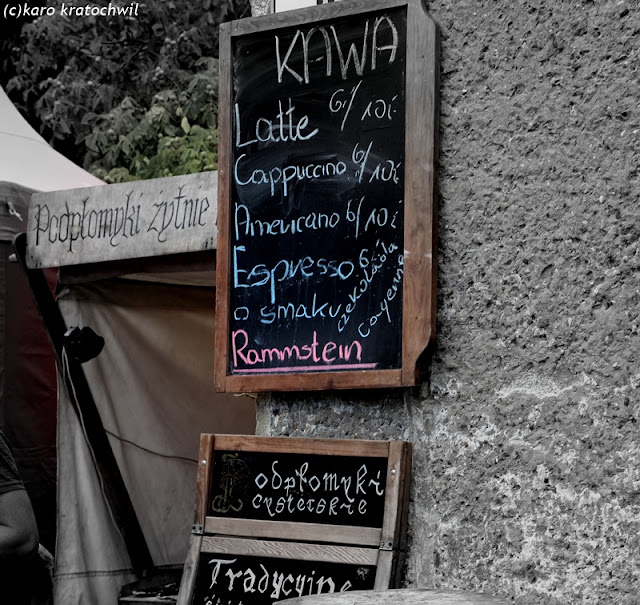 (c)karo kratochwil
KAWA
Latte 6/10i
Cappuccino 6/10i
Americano 6/10i
Espresso 6
o smaku czekolada
cayenne
Rammstein
Podpłomyki żytnie
Podpłomyki
cysterskie
Tradycyjne